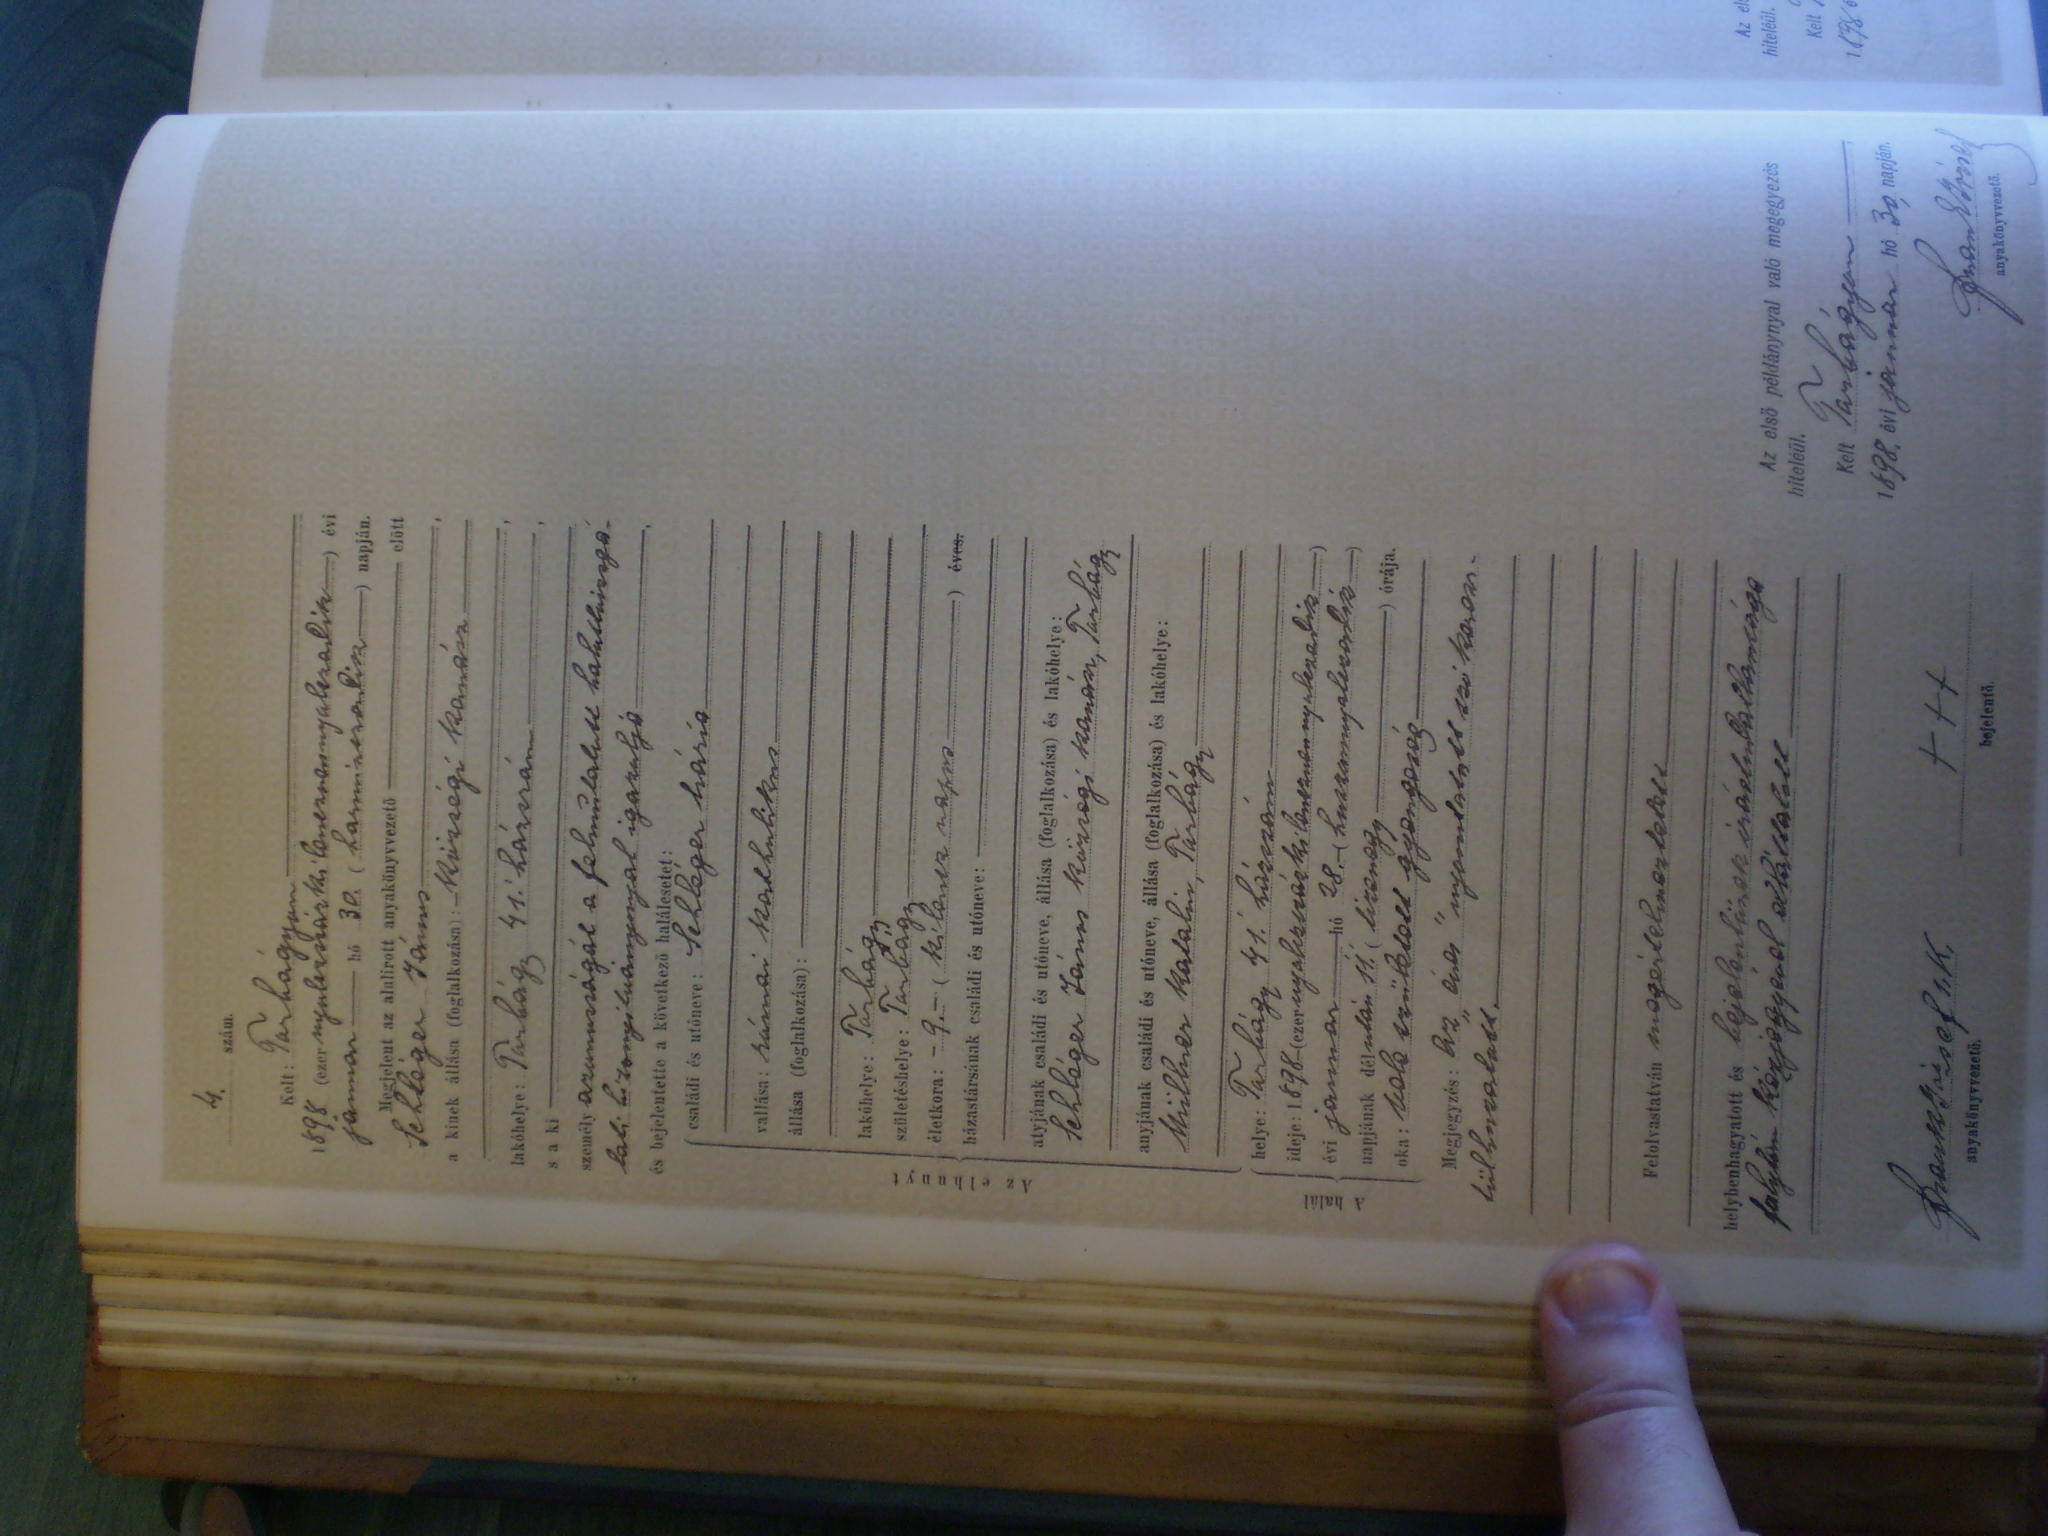 4. szám.
Kelt: Tarbágyan
1898 (ezernyolczszázkilenczvennyolczadik) évi
januar hó 30. (harminczadik) napján.
Megjelent az alulirott anyakönyvvezető előtt
Schláger János
a kinek állása (foglalkozása): községi kanász
lakóhelye: Tarbágy 41. házszám
s a ki
személy azonosságát a felmutatott
bizonyítványnyal igazolja
és bejelentette a következő halálesetet:
Az elhunyt
családi és utóneve: Schláger Mária
vallása: római katholikus
állása (foglalkozása):
lakóhelye: Tarbágy
születéshelye: Tarbágy
életkora: 9. (kilencz napos) éves.
házastársának családi és utóneve:
atyjának családi és utóneve, állása (foglalkozása) és lakóhelye:
Schláger János községi kanász, Tarbágy
anyjának családi és utóneve, állása (foglalkozása) és lakóhelye:
Katalin, Tarbágy
A halál
helye: Tarbágy 41. házszám
ideje: 1898 (ezernyolczszázkilenczvennyolczadik)
évi januar hó 28. (huszonnyolczadik)
napjának délután 11. (tizenegy) órája.
oka: vele született gyengeség
Megjegyzés: Az „éves" nyomtatott szó keresz-
tülhuzatott.
Felolvastatván megértelmeztetett
helybenhagyatott és bejelentőnek irástudatlansága
folytán kézjegyével elláttatott
Brandt József s. k.
anyakönyvvezető.
+++
bejelentő.
Az első példánynyal való megegyezés
hiteléül.
Kelt Tarbágyan
1898. évi januar hó 30, napján.
Brandt József
anyakönyvvezető.
Az el
hiteléül.
Kelt
1898